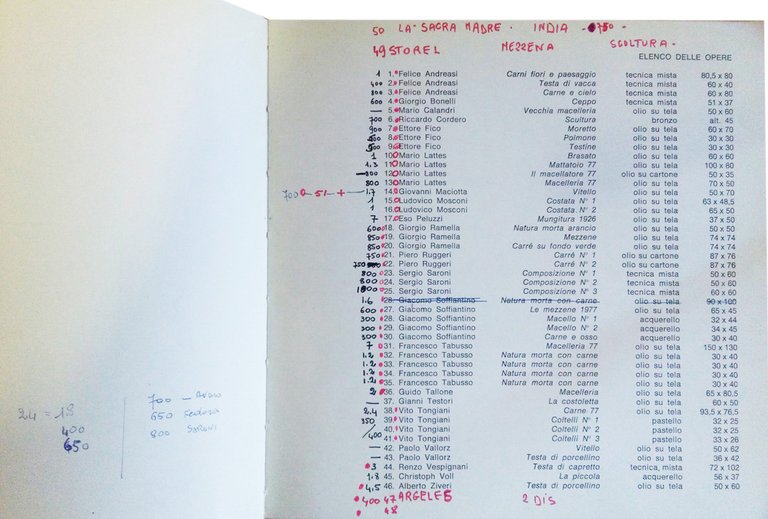 50 LA SACRA MADRE · INDIA - 750 -
49 STOREL MEZZENA SCOLTURA -
ELENCO DELLE OPERE
1 1. Felice Andreasi Carni fiori e paesaggio tecnica mista 80,5 x 80
400 2. Felice Andreasi Testa di vacca tecnica mista 60 x 40
800 3. Felice Andreasi Carne e cielo tecnica mista 60 x 80
600 4. Giorgio Bonelli Ceppo tecnica mista 51 x 37
— 5. Mario Calandri Vecchia macelleria olio su tela 50 x 60
700 6. Riccardo Cordero Scultura bronzo alt. 45
900 7. Ettore Fico Moretto olio su tela 60 x 70
8. Ettore Fico Polmone olio su tela 30 x 30
9. Ettore Fico Testine olio su tela 30 x 30
1 10. Mario Lattes Brasato olio su tela 60 x 60
1.3 11. Mario Lattes Mattatoio 77 olio su tela 100 x 80
800 12. Mario Lattes Il macellatore 77 olio su cartone 50 x 35
800 13. Mario Lattes Macelleria 77 olio su tela 70 x 50
700 — 51 + — 1.7 14. Giovanni Maciotta Vitello olio su tela 50 x 70
1 15. Ludovico Mosconi Costata N° 1 olio su tela 63 x 48,5
1 16. Ludovico Mosconi Costata N° 2 olio su tela 65 x 50
7 17. Eso Peluzzi Mungitura 1926 olio su tela 37 x 50
600 18. Giorgio Ramella Natura morta arancio olio su tela 50 x 50
850 19. Giorgio Ramella Mezzene olio su tela 74 x 74
850 20. Giorgio Ramella Carré su fondo verde olio su tela 74 x 74
750 21. Piero Ruggeri Carré N° 1 olio su cartone 87 x 76
750 22. Piero Ruggeri Carré N° 2 olio su cartone 87 x 76
800 23. Sergio Saroni Composizione N° 1 tecnica mista 50 x 60
800 24. Sergio Saroni Composizione N° 2 tecnica mista 50 x 60
1000 25. Sergio Saroni Composizione N° 3 tecnica mista 60 x 60
1.6 26. Giacomo Soffiantino Natura morta con carne olio su tela 90 x 100
600 27. Giacomo Soffiantino Le mezzene 1977 olio su tela 65 x 45
300 28. Giacomo Soffiantino Macello N° 1 acquerello 32 x 44
300 29. Giacomo Soffiantino Macello N° 2 acquerello 34 x 45
300 30. Giacomo Soffiantino Carne e osso acquerello 34 x 40
7 31. Francesco Tabusso Macelleria 77 olio su tela 150 x 130
1.2 32. Francesco Tabusso Natura morta con carne olio su tela 30 x 40
1.2 33. Francesco Tabusso Natura morta con carne olio su tela 30 x 40
1.2 34. Francesco Tabusso Natura morta con carne olio su tela 30 x 40
1.2 35. Francesco Tabusso Natura morta con carne olio su tela 30 x 40
2 36. Guido Tallone Macelleria olio su tela 65 x 80,5
— 37. Gianni Testori La costoletta olio su tela 60 x 50
2,4 38. Vito Tongiani Carne 77 olio su tela 93,5 x 76,5
350 39. Vito Tongiani Coltelli N° 1 pastello 32 x 25
40. Vito Tongiani Coltelli N° 2 pastello 32 x 25
400 41. Vito Tongiani Coltelli N° 3 pastello 33 x 26
— 42. Paolo Vallorz Vitello olio su tela 50 x 62
— 43. Paolo Vallorz Testa di porcellino olio su tela 36 x 42
3 44. Renzo Vespignani Testa di capretto tecnica mista 72 x 102
1.8 45. Christoph Voll La piccola acquerello 56 x 37
4,5 46. Alberto Ziveri Testa di porcellino olio su tela 50 x 60
400 47 ARGELES 2 DIS
48
24 = 18
400
650
700 —
650
800 SARONI